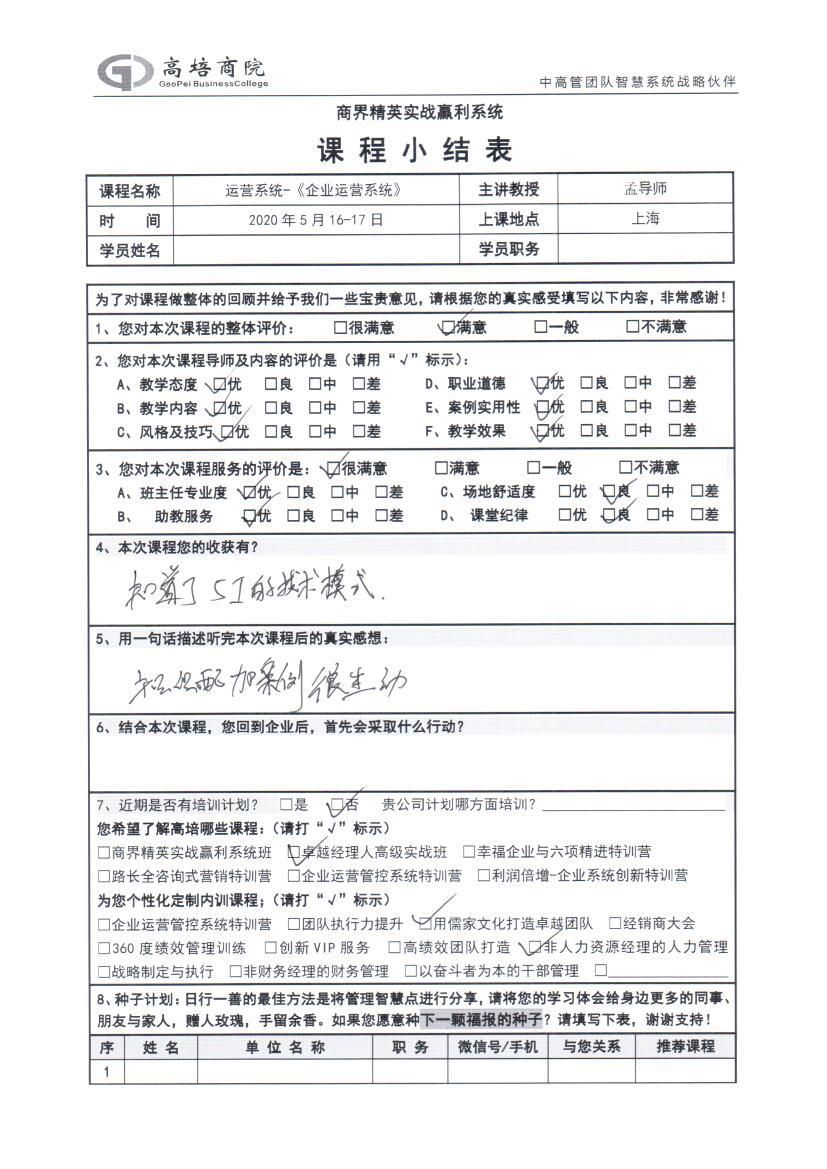 高培商院
GaoPei BusinessCollege
中高管团队智慧系统战略伙伴
商界精英实战赢利系统
课程小结表
课程名称 运营系统-《企业运营系统》 主讲教授 孟导师
时 间 2020 年 5 月 16-17 日 上课地点 上海
学员姓名 学员职务
为了对课程做整体的回顾并给予我们一些宝贵意见，请根据您的真实感受填写以下内容，非常感谢！
1、您对本次课程的整体评价： □很满意 ☑满意 □一般 □不满意
2、您对本次课程导师及内容的评价是（请用“√”标示）：
A、教学态度 ☑优 □良 □中 □差 D、职业道德 ☑优 □良 □中 □差
B、教学内容 ☑优 □良 □中 □差 E、案例实用性 ☑优 □良 □中 □差
C、风格及技巧 ☑优 □良 □中 □差 F、教学效果 ☑优 □良 □中 □差
3、您对本次课程服务的评价是： ☑很满意 □满意 □一般 □不满意
A、班主任专业度 ☑优 □良 □中 □差 C、场地舒适度 □优 ☑良 □中 □差
B、 助教服务 ☑优 □良 □中 □差 D、 课堂纪律 □优 ☑良 □中 □差
4、本次课程您的收获有？
知道了 SI的技术模式.
5、用一句话描述听完本次课程后的真实感想：
知识配加案例很生动
6、结合本次课程，您回到企业后，首先会采取什么行动？
7、近期是否有培训计划？ □是 ☑否 贵公司计划哪方面培训？
您希望了解高培哪些课程：（请打“√”标示）
□商界精英实战赢利系统班 ☑卓越经理人高级实战班 □幸福企业与六项精进特训营
□路长全咨询式营销特训营 □企业运营管控系统特训营 □利润倍增-企业系统创新特训营
为您个性化定制内训课程；（请打“√”标示）
□企业运营管控系统特训营 □团队执行力提升 ☑用儒家文化打造卓越团队 □经销商大会
□360 度绩效管理训练 □创新 VIP 服务 □高绩效团队打造 ☑非人力资源经理的人力管理
□战略制定与执行 □非财务经理的财务管理 □以奋斗者为本的干部管理 □
8、种子计划：日行一善的最佳方法是将管理智慧点进行分享，请将您的学习体会给身边更多的同事、
朋友与家人，赠人玫瑰，手留余香。如果您愿意种下一颗福报的种子？请填写下表，谢谢支持！
序 姓 名 单 位 名 称 职 务 微信号/手机 与您关系 推荐课程
1